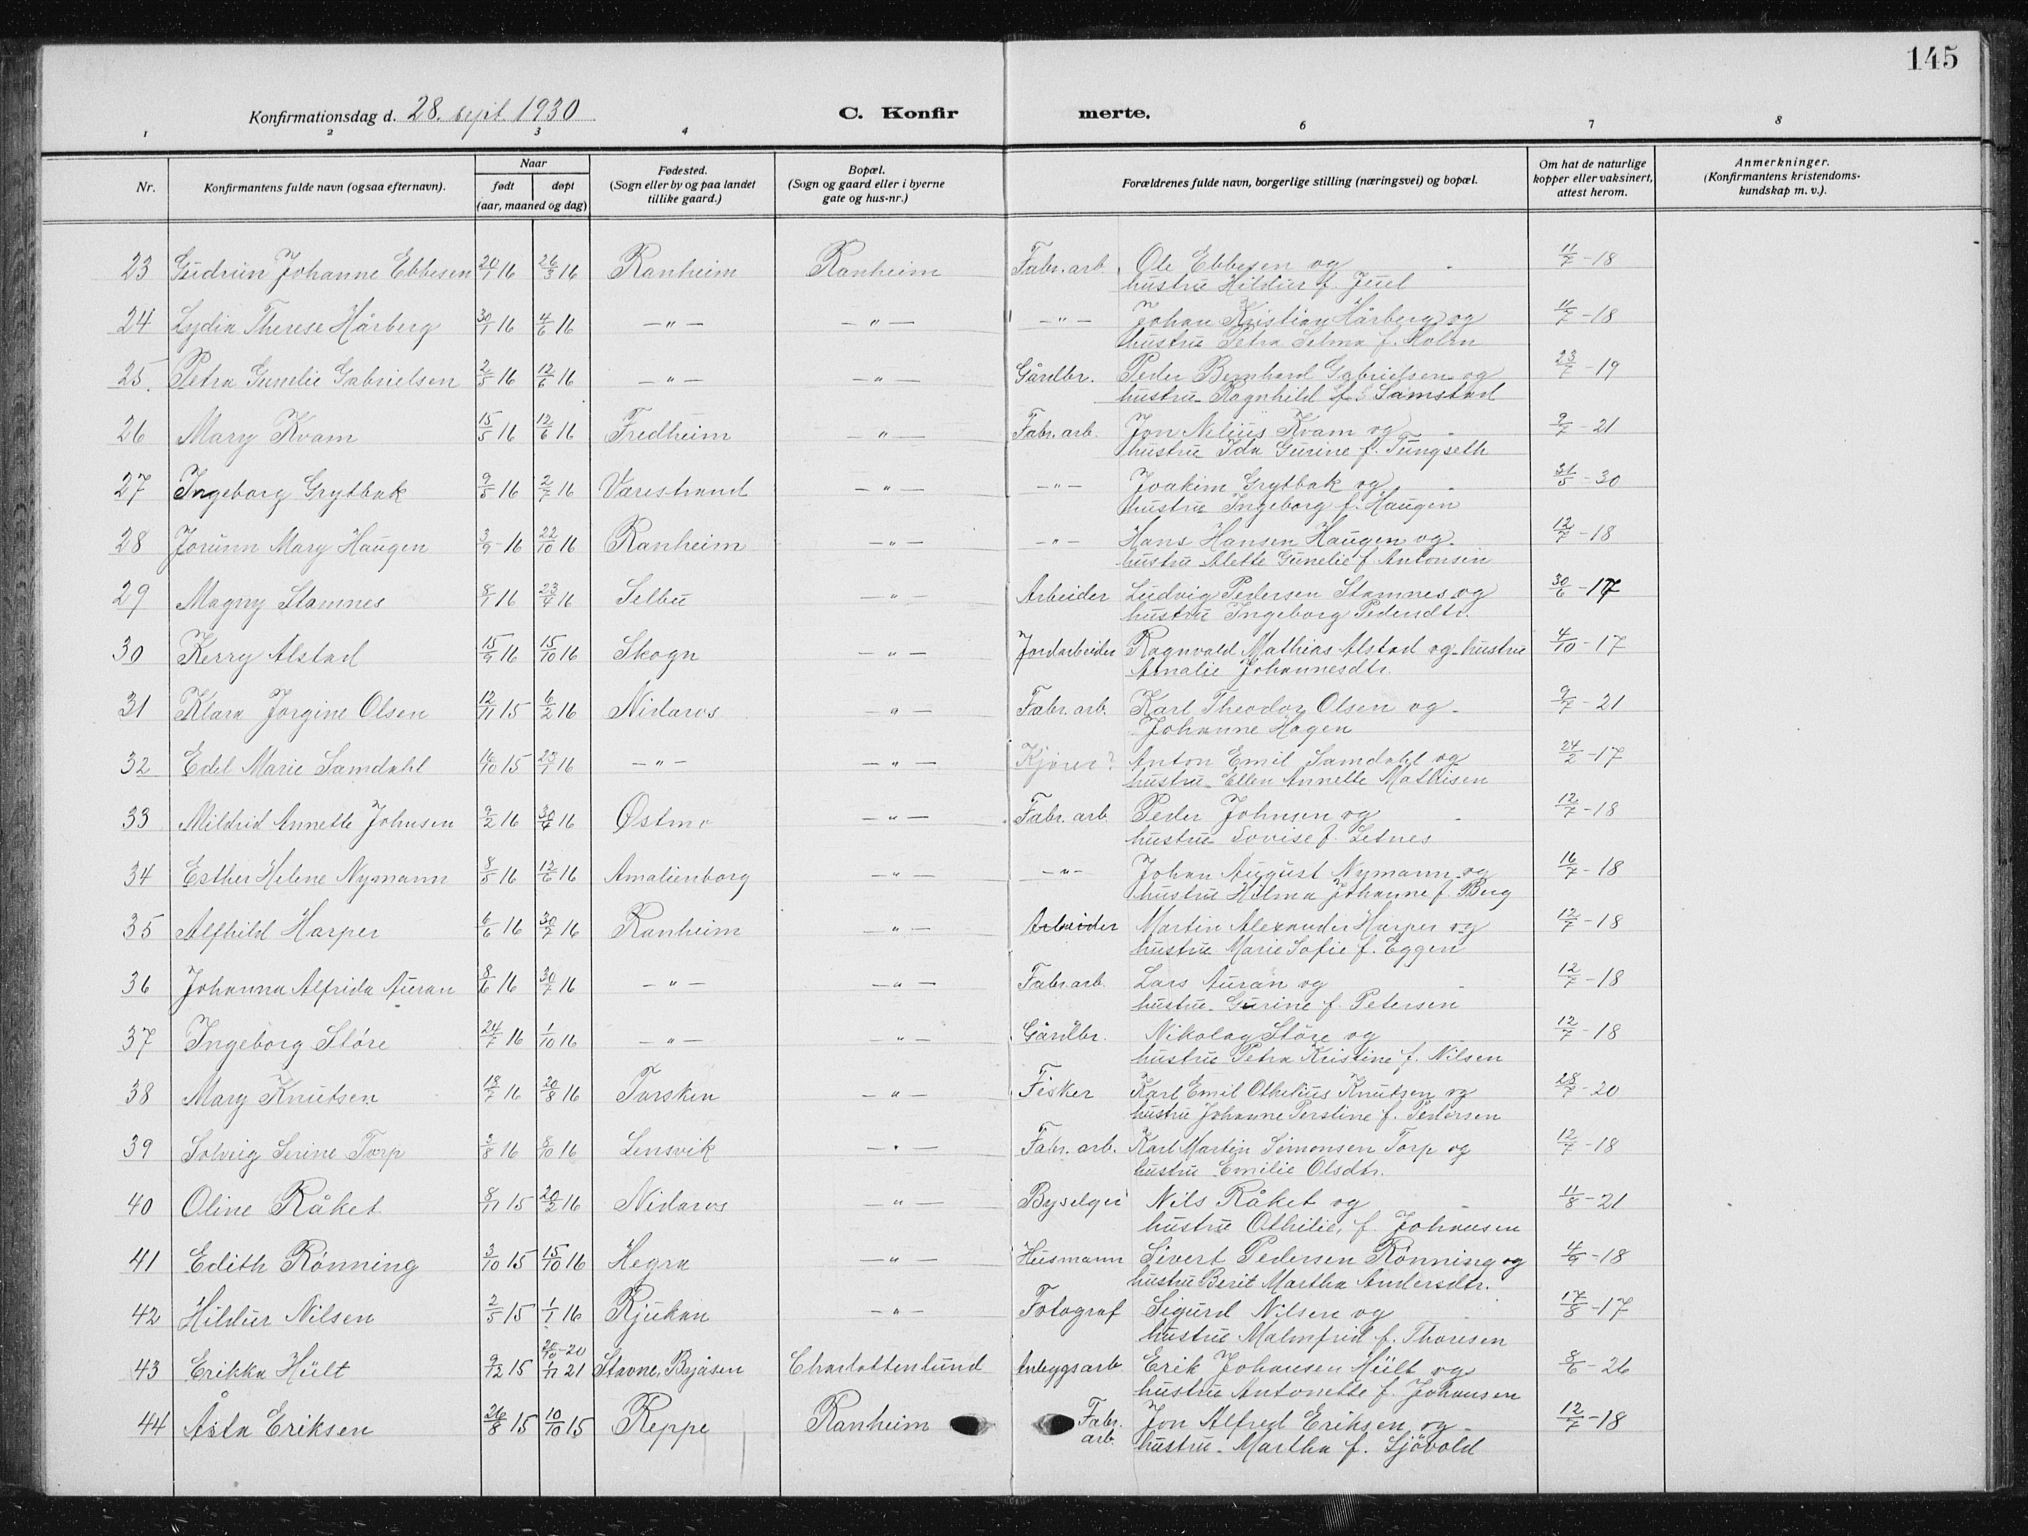 145
Konfirmationsdag d. 28. sept. 1930 C. Konfir merte.
1 2 3 4 5 6 7 8
Nr. Konfirmantens fulde navn (ogsaa efternavn). Naar født døpt (aar, maaned og dag) Fødested. (Sogn eller by og paa landet tillike gaard.) Bopæl. (Sogn og gaard eller i byerne gate og hus-nr.) Forældrenes fulde navn, borgerlige stilling (næringsvei) og bopæl. Om hat de naturlige kopper eller vaksinert, attest herom. Anmerkninger. (Konfirmantens kristendoms- kundskap m. v.).
23 Gudrun Johanne Ebbesen 20/1 16 26/3 16 Ranheim Ranheim Fabr. arb. Ole Ebbesen og 11/7 - 18
hustru Hildur f. Juul
24 Lydia Therese Hårberg 30/1 16 4/6 16 — " — — " — — " — Johan Kristian Hårberg og 11/7 - 18
hustru Petra Selma f. Holm
25. Petra Gunelie Gabrielsen 2/5 16 12/6 16 — " — — " — Gårdbr. Peder Bernhard Gabrielsen og 23/7 - 19
hustru Ragnhild f. Samstad
26 Mary Kvam 15/5 16 12/6 16 Fredheim — " — Fabr. arb. Jon Nelius Kvam og 9/7 - 21
hustru Ida Gurine f. Tungseth
27 Ingeborg Grytbak 9/5 16 2/7 16 Værestrand — " — — " — Joakim Grytbak og 31/5 - 30
hustru Ingeborg f. Haugen
28 Jorunn Mary Haugen 3/9 - 16 22/10 16 Ranheim — " — — " — Hans Hansen Haugen og 12/7 - 18
hustru Alette Gunelie f. Antonsen
29 Magny Stamnes 8/1 16 23/4 16 Selbu — " — Arbeider Ludvig Pedersen Stamnes og 30/6 - 17
hustru Ingeborg Pedersdtr.
30 Kerry Alstad 15/9 16 15/10 16 Skogn — " — Jordarbeider Ragnvald Mathias Alstad og hustru 4/10 - 17
Amalie Johannesdtr.
31 Klara Jørgine Olsen 12/11 15 6/2 16 Nidaros — " — Fabr. arb. Karl Theodor Olsen og 9/7 - 21
Johanne Hagen
32 Edel Marie Samdahl 16/10 15 23/1 16 — " — — " — Kjører? Anton Emil Samdahl og 24/2 - 17
hustru Ellen Annette Mathisen
33 Mildrid Annette Johnsen 9/2 16 30/4 16 Østmo — " — Fabr. arb. Peder Johnsen og 12/7 - 18
hustru Lovise f. Letnes
34 Esther Helene Nymann 8/5 16 12/6 16 Amalienborg — " — — " — Johan August Nymann og 16/7 - 18
hustru Hilma Johanne f. Berg
35 Alfhild Harper 6/6 16 30/7 16 Ranheim — " — Arbeider Martin Alexander Harper og 12/7 - 18
hustru Marie Sofie f. Eggen
36 Johanna Alfrida Auran 8/6 16 30/7 16 — " — — " — Fabr. arb. Lars Auran og 12/7 - 18
hustru Gurine f. Petersen
37 Ingeborg Støre 24/7 16 1/10 16 — " — — " — Gårdbr. Nikolay Støre og 12/7 - 18
hustru Petra Kristine f. Nilsen
38 Mary Knutsen 18/7 16 20/8 16 Torsken — " — Fisker Karl Emil Othelius Knutsen og 28/7 - 20
hustru Johanne Perstine f. Pedersen
39 Solveig Serine Torp 3/8 16 8/10 16 Lensvik — " — Fabr. arb. Karl Martin Simonsen Torp og 12/7 - 18
hustru Emilie Olsdtr.
40 Oline Råket 8/11 15 20/2 16 Nidaros — " — Byselger Nils Råket og 11/8 - 21
hustru Othilie, f. Johansen
41 Edith Rønning 3/10 15 15/10 16 Hegra — " — Husmann Sivert Pedersen Rønning og 4/9 - 18
hustru Berit Martha Andersdtr.
42 Hildur Nilsen 2/5 15 1/1 16 Rjukan — " — Fotograf Sigurd Nilsen og 17/8 - 17
hustru Malmfrid f. Thoresen
43 Erikka Hult 9/12 15 1/11 21 Stavne, Byåsen Charlottenlund Anleggsarb. Erik Johansen Hult og 8/6 - 26
hustru Antonette f. Johansen
44 Asta Eriksen 26/8 15 10/10 15 Reppe Ranheim Fabr. arb. Jon Alfred Eriksen og 12/7 - 18
hustru Martha f. Sjøvold